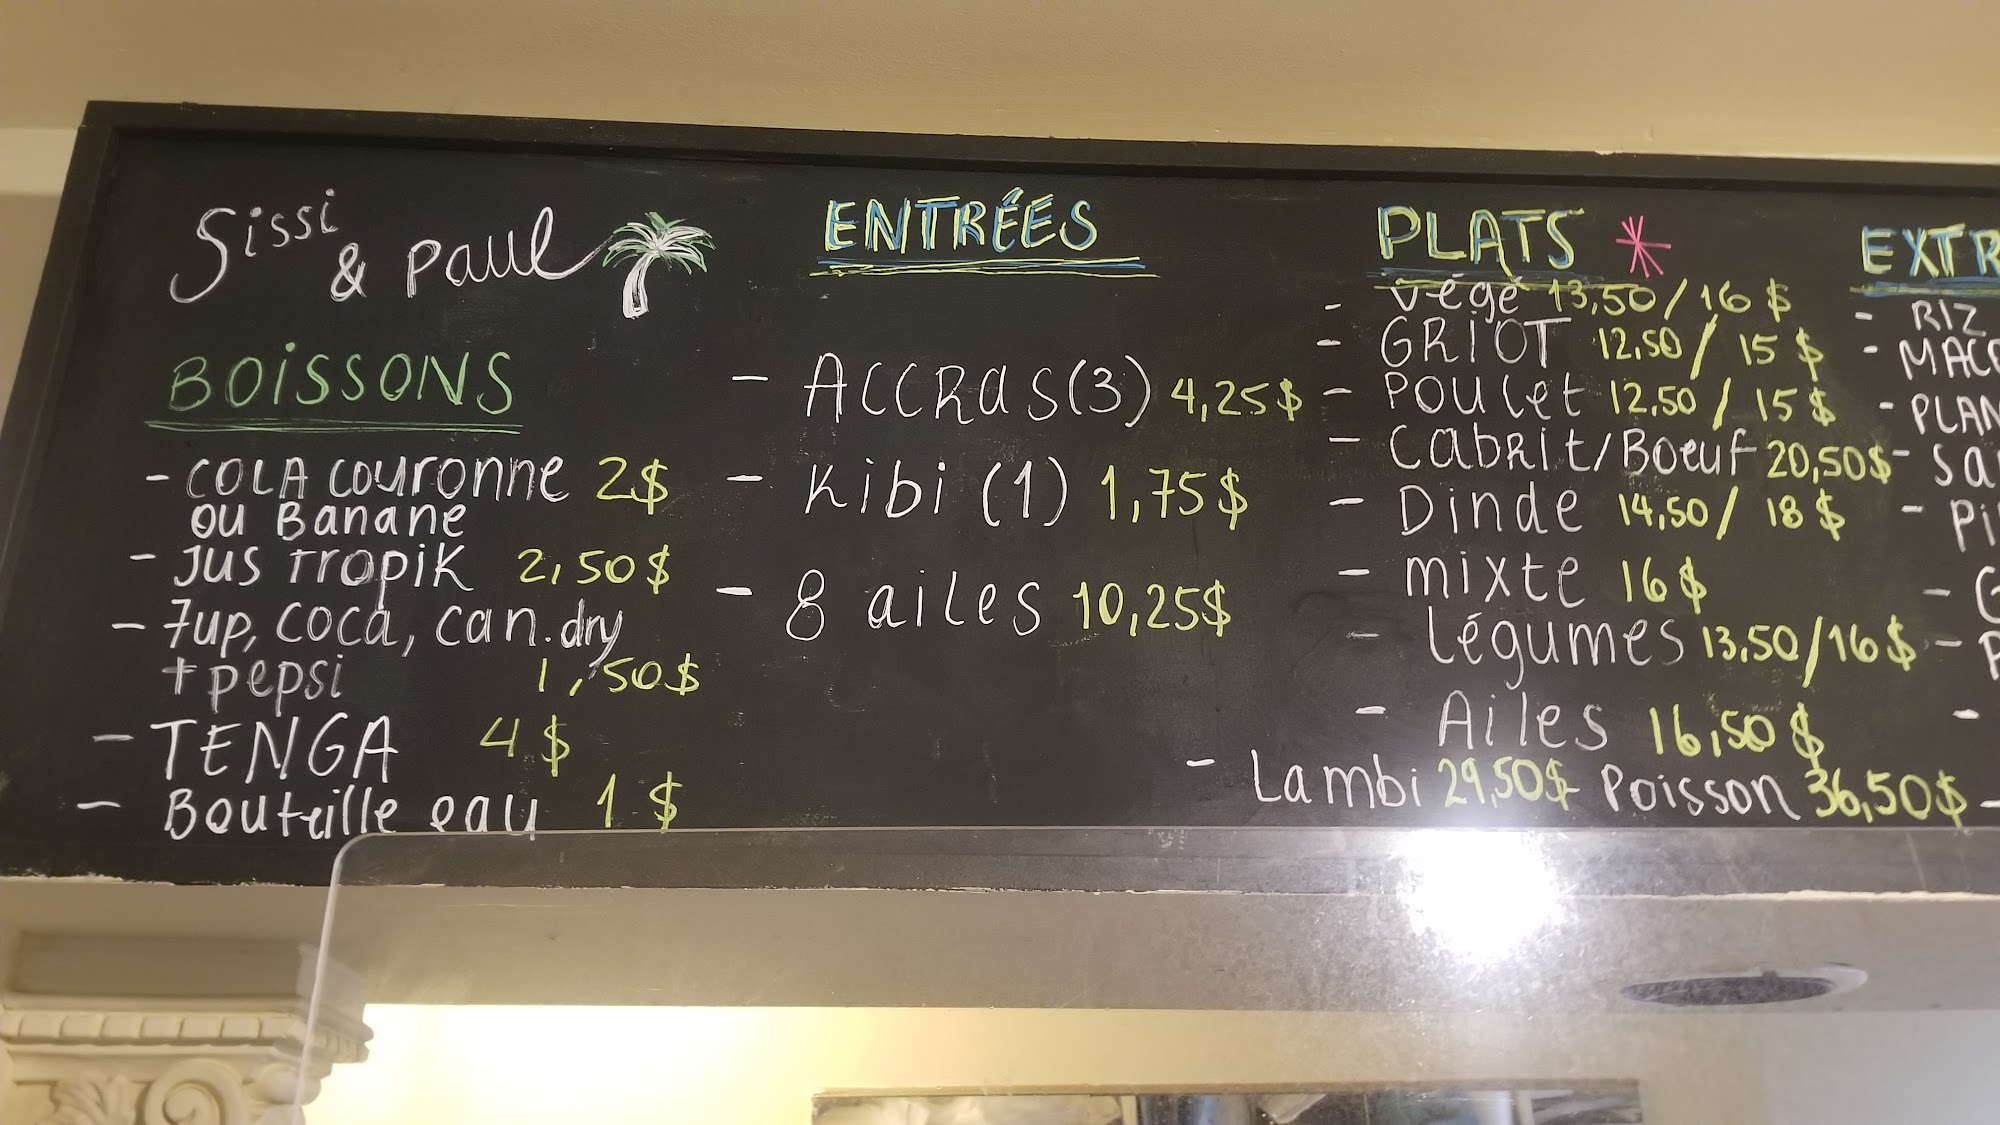 Sissi
& Paul
BOISSONS
- COLA COURONNE 2$
OU BANANE
- JUS TROPIK 2,50$
- 7up, COCA, CAN.dry
+ pepsi 1,50$
- TENGA 4$
- Bouteille eau 1$
ENTRÉES
- ACCRAS (3) 4,25$
- Kibi (1) 1,75$
- 8 ailes 10,25$
PLATS *
- végé 13,50/16$
- GRIOT 12,50/15$
- POULET 12,50/15$
- CABRIT/BOEUF 20,50$
- Dinde 14,50/18$
- mixte 16$
- Légumes 13,50/16$
- Ailes 16,50$
- Lambi 29,50$ - Poisson 36,50$
EXTR
- RIZ
- MAC
- PLAN